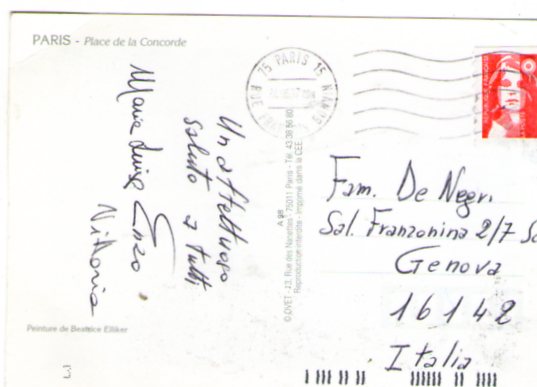 PARIS - Place de la Concorde
75 PARIS 15
REPUBLIQUE FRANÇAISE
Un affettuoso
saluto a tutti
Maria Luisa Enzo
Vittoria
A 98
© OVET - 13, Rue des Nanettes - 75011 Paris - Tél. 43 38 56 80
Reproduction interdite - Imprimé dans la CEE
Fam. De Negri
Sal. Franzonina 2/7 Sc
Genova
16142
Italia
Peinture de Beatrice Elliker